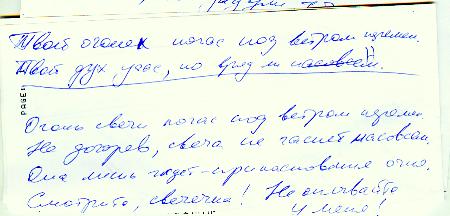 Твой огонек погас под ветром перемен.
Твой дух угас, но вряд ли насовсем.
PAGE
Огонь свечи погас под ветром перемен.
Не догорев, свеча не гаснет насовсем.
Она лишь ждет прикосновения огня.
Смотрите, свечечка! Не опизывайте
у меня!